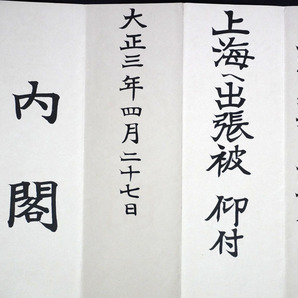 上海へ出張被　仰付
大正三年四月二十七日
内閣